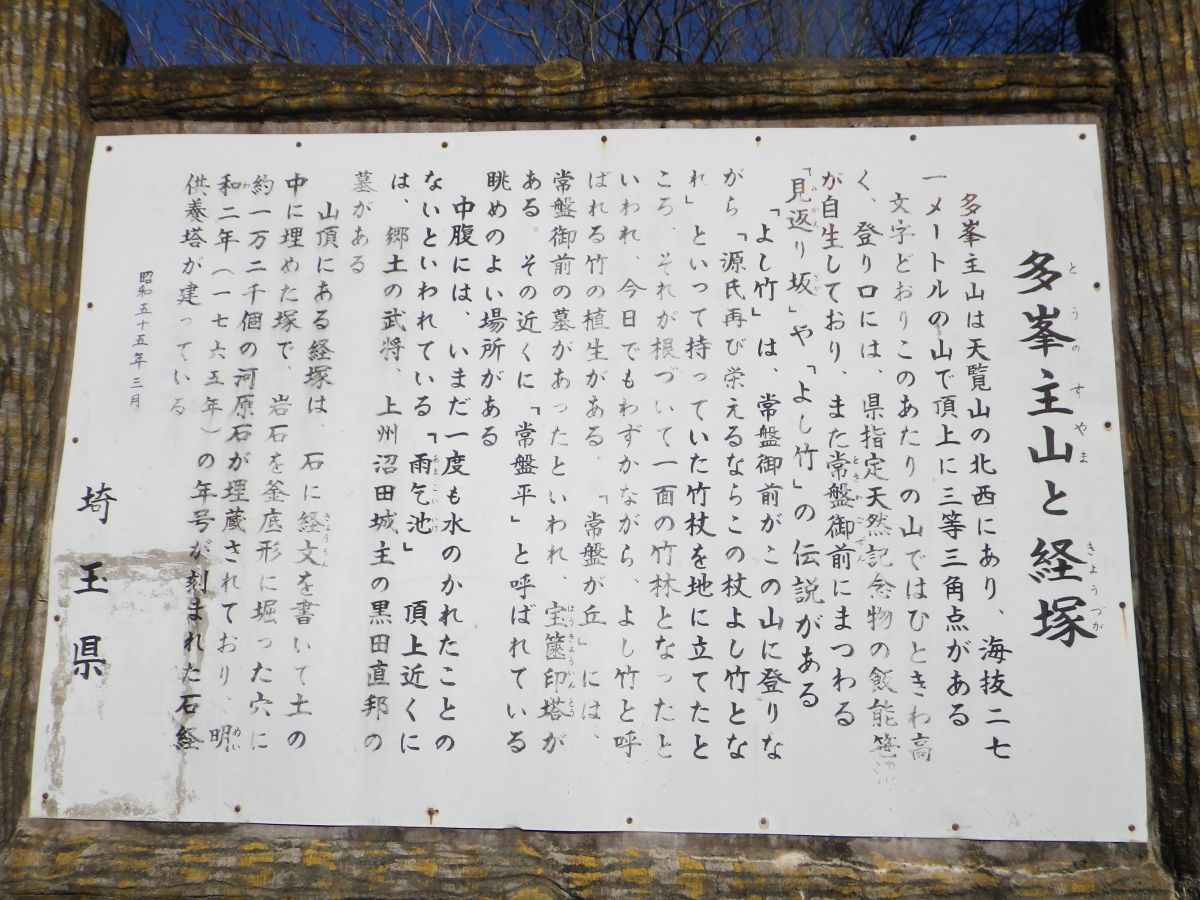 多峯主山と経塚
とうのすやま きょうづか
多峯主山は天覧山の北西にあり、海抜二七
一メートルの山で頂上に三等三角点がある
文字どおりこのあたりの山ではひときわ高
く、登り口には、県指定天然記念物の飯能笹
が自生しており、また常盤御前にまつわる
「見返り坂」や「よし竹」の伝説がある
「よし竹」は、常盤御前がこの山に登りな
がら「源氏再び栄えるならこの杖よし竹とな
れ」といって持っていた竹杖を地に立てたと
ころ、それが根づいて一面の竹林となったと
いわれ、今日でもわずかながら よし竹と呼
ばれる竹の植生がある。「常盤が丘」には、
常盤御前の墓があったといわれ、宝篋印塔が
ある。その近くに「常盤平」と呼ばれている
眺めのよい場所がある
中腹には、いまだ一度も水のかれたことの
ないといわれている「雨乞池」 頂上近くに
は、郷土の武将、上州沼田城主の黒田直邦の
墓がある
山頂にある経塚は、石に経文を書いて土の
中に埋めた塚で、岩石を釜底形に堀った穴に
約一万二千個の河原石が埋蔵されており、明
和二年(一七六五年)の年号が刻まれた石経
供養塔が建っている
昭和五十五年三月
埼玉県